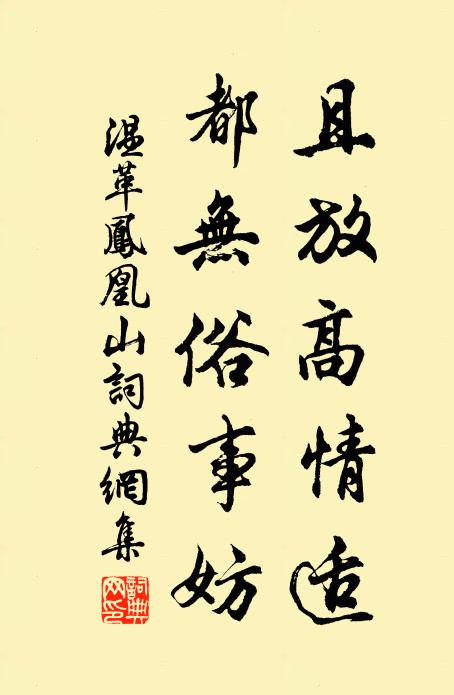 且放高情适
都無俗事妨
温革鳳凰山詞典網集
詞典網印